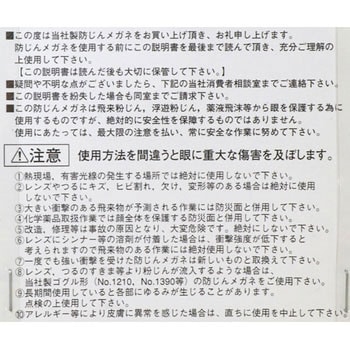 ■この度は当社製防じんメガネをお買い上げ頂き、お礼申し上げます。
防じんメガネを使用する前にこの説明書を最後まで読んで頂き、充分ご理解の
上使用して下さい。
【この説明書は読んだ後も大切に保管して下さい。】
■疑問や不明な点がございましたら、下記の当社消費者相談室までご連絡下さい。
■この説明書を紛失した場合も同室までご請求下さい。
■この防じんメガネは飛来粉じん、浮遊粉じん、薬液飛沫等から眼を保護する為に
使用するものですが、絶対的に安全性を保障するものではありません。
使用にあたっては、最大限の注意を払い、常に安全な作業に努めて下さい。
⚠注意 使用方法を間違うと眼に重大な傷害を及ぼします。
①熱現場、有害光線の発生する場所では絶対に使用しないで下さい。
②レンズやつるにキズ、ヒビ割れ、欠け、変形等のある場合は絶対に使用
しないで下さい。
③大きい衝撃のある飛来物が予測される作業には防災面と併用して下さい。
④化学薬品取扱作業では顔全体を保護する防災面と併用して下さい。
⑤改造、修理等は事故の原因となり、大変危険です。絶対にしないで下さい。
⑥レンズにシンナー等の溶剤が付着した場合は、衝撃強度が低下すると
考えられますので飛来物のある作業には絶対使用しないで下さい。
⑦一度でも強い衝撃を受けた防じんメガネは新しいものと取換えて下さい。
⑧レンズ、つるのすき間等より粉じんが流入するような場合は、
当社製ゴグル形(No.1210、No.1390等)の防じんメガネをご使用下さい。
⑨長期間使用していると各部にゆるみが生じることがあります。
点検の上使用して下さい。
⑩アレルギー等により皮膚に異常を感じた場合は、直ちに使用を中止して下さい。